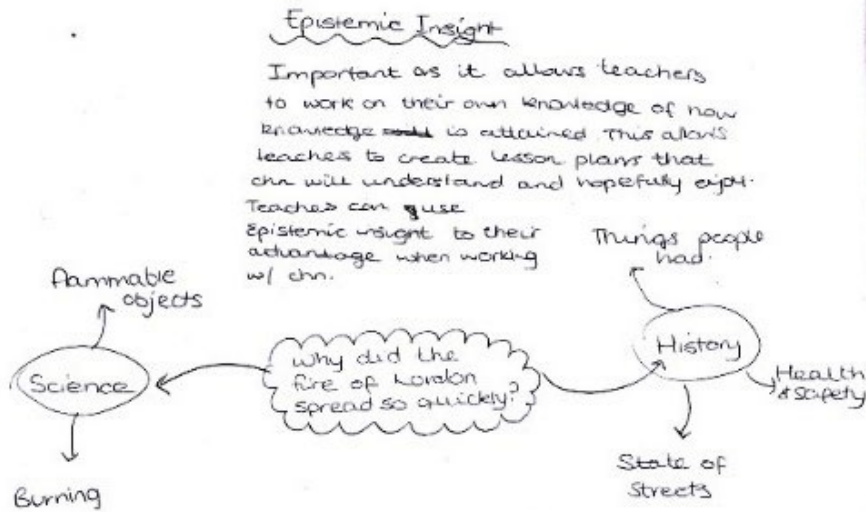 Epistemic Insight
Important as it allows teachers
to work on their own knowledge of how
knowledge is attained. This allows
teaches to create lesson plans that
chn will understand and hopefully enjoy.
Teaches can use
Epistemic insight to their
advantage when working
w/ chn.
Things people
had.
flammable
objects
Science
Why did the
fire of London
spread so quickly?
History
Health
& safety
Burning
State of
streets